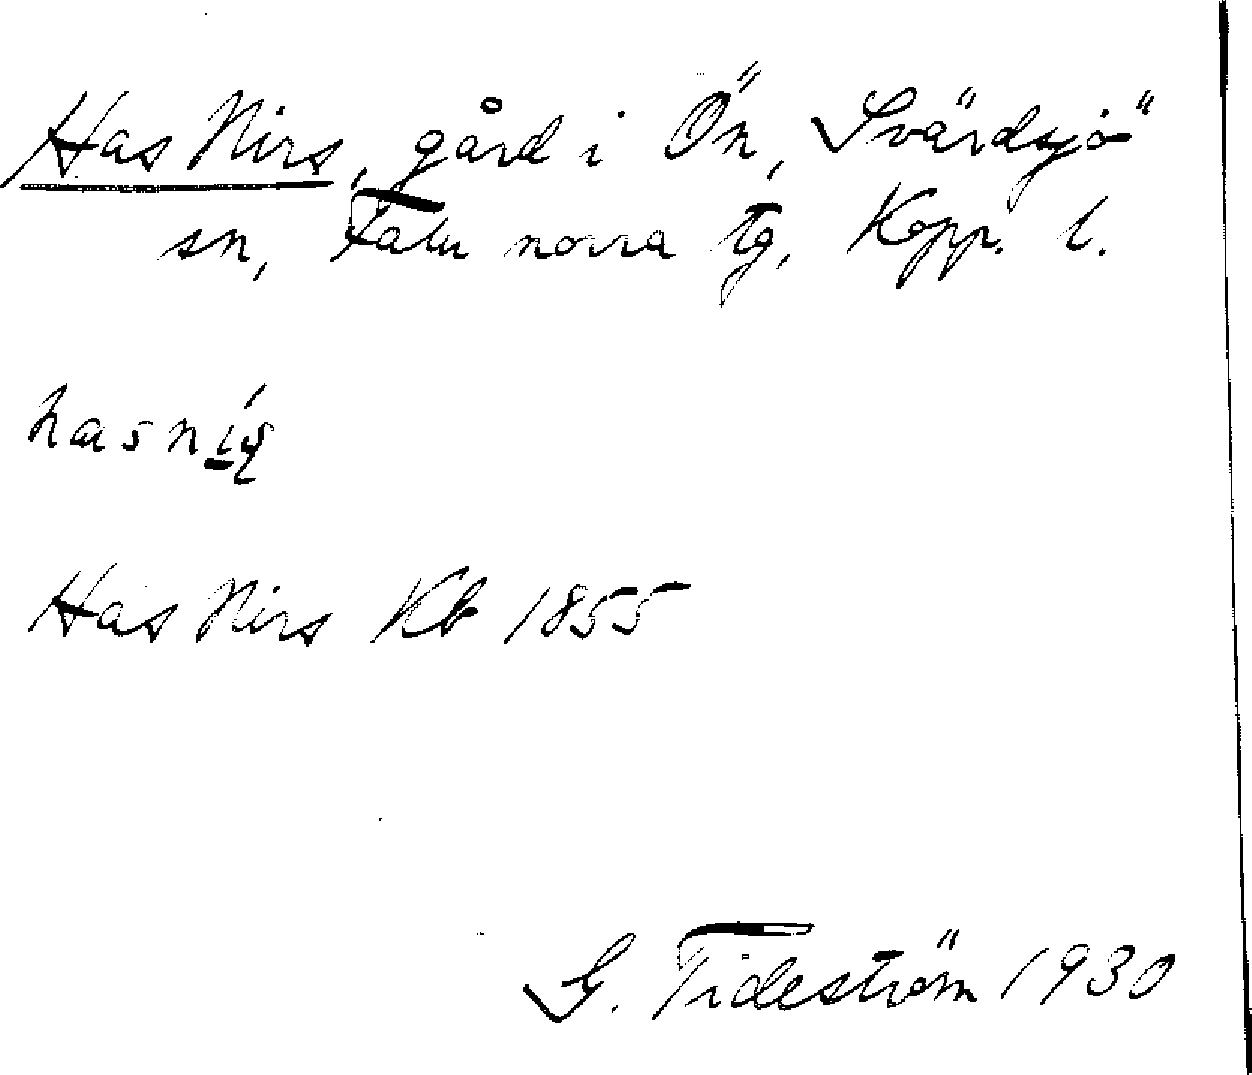 Has Nirs, gård i Ön, Svärdsjö
sn, Falu norra tg, Kopp. l.
Has Nirs Kb 1855
G. Tideström 1930